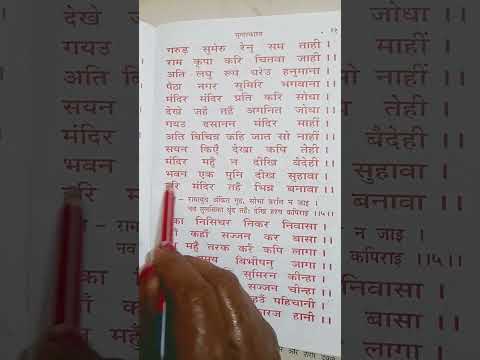 सुन्दरकाण्ड
गरुड़ सुमेरु रेनु सम ताही ।
राम कृपा करि चितवा जाही ।।
अति लघु रूप धरेउ हनुमाना ।
पैठा नगर सुमिरि भगवाना ।।
मंदिर मंदिर प्रति करि सोधा ।
देखे जहँ तहँ अगनित जोधा ।।
गयउ दसानन मंदिर माहीं ।
अति बिचित्र कहि जात सो नाहीं ।।
सयन किएँ देखा कपि तेही ।
मंदिर महुँ न दीखि बैदेही ।।
भवन एक पुनि दीख सुहावा ।
हरि मंदिर तहँ भिन्न बनावा ।।
रामायुध अंकित गृह, सोभा बरनि न जाइ ।
नव तुलसिका बृंद तहँ, देखि हरष कपिराइ ।।५।।
का निसिचर निकर निवासा ।
कहाँ सज्जन कर बासा ।।
महुँ तरक करै कपि लागा ।
बिभीषनु जागा ।।
सुमिरन कीन्हा ।
सज्जन चीन्हा ।।
पहिचानी ।
कारज हानी ।।